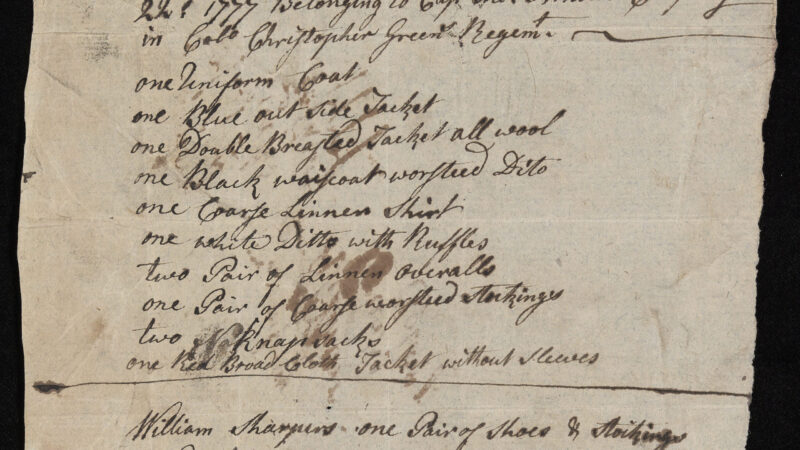 22d 1777 Belonging to Cap
in Colo Christopher Green Regemt
one Uniform Coat
one Blue out side Jacket
one Double Breasted Jacket all wool
one Black waiscoat worsteed Dito
one Coarse Linnen Shirt
one white Ditto with Ruffles
two Pair of Linnen overalls
one Pair of Coarse worsteed stockings
two Knapsacks
one Red Broad Cloth Jacket without sleeves
William Sharpers one Pair of shoes & stockings